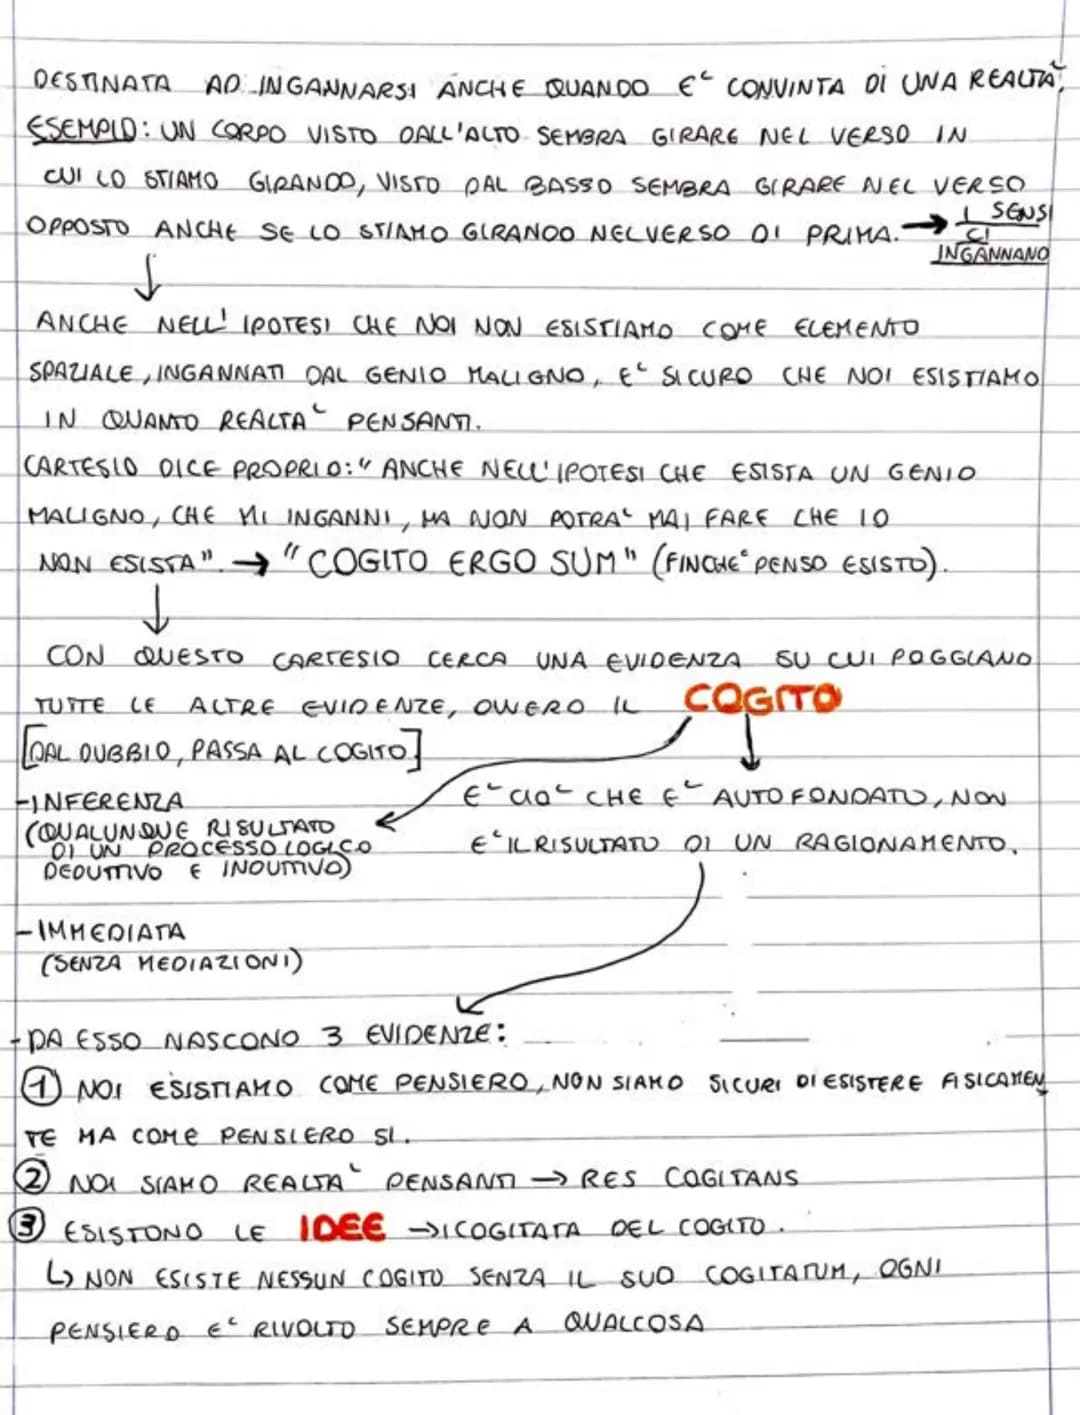 DESTINATA AD INGANNARSI ANCHE QUANDO E' CONVINTA DI UNA REALTA'.
ESEMPIO: UN CORPO VISTO DALL'ALTO SEMBRA GIRARE NEL VERSO IN
CUI LO STIAMO GIRANDO, VISTO DAL BASSO SEMBRA GIRARE NEL VERSO
OPPOSTO ANCHE SE LO STIAMO GIRANDO NEL VERSO DI PRIMA. → I SENSI
CI
INGANNANO
↓
ANCHE NELL' IPOTESI CHE NOI NON ESISTIAMO COME ELEMENTO
SPAZIALE, INGANNATI DAL GENIO MALIGNO, E' SICURO CHE NOI ESISTIAMO
IN QUANTO REALTA' PENSANTI.
CARTESIO DICE PROPRIO: " ANCHE NELL'IPOTESI CHE ESISTA UN GENIO
MALIGNO, CHE MI INGANNI, MA NON POTRA' MAI FARE CHE IO
NON ESISTA". → "COGITO ERGO SUM" (FINCHE' PENSO ESISTO).
↓
CON QUESTO CARTESIO CERCA UNA EVIDENZA SU CUI POGGIANO
TUTTE LE ALTRE EVIDENZE, OVVERO IL COGITO
[DAL DUBBIO, PASSA AL COGITO]
E' CIO' CHE E' AUTOFONDATO, NON
E' IL RISULTATO DI UN RAGIONAMENTO.
-INFERENZA
(QUALUNQUE RISULTATO
DI UN PROCESSO LOGICO
DEDUTTIVO E INDUTTIVO)
-IMMEDIATA
(SENZA MEDIAZIONI)
-DA ESSO NASCONO 3 EVIDENZE:
① NOI ESISTIAMO COME PENSIERO, NON SIAMO SICURI DI ESISTERE FISICAMEN
TE MA COME PENSIERO SI.
② NOI SIAMO REALTA' PENSANTI → RES COGITANS
③ ESISTONO LE IDEE → I COGITATA DEL COGITO.
↳ NON ESISTE NESSUN COGITO SENZA IL SUO COGITATUM, OGNI
PENSIERO E' RIVOLTO SEMPRE A QUALCOSA